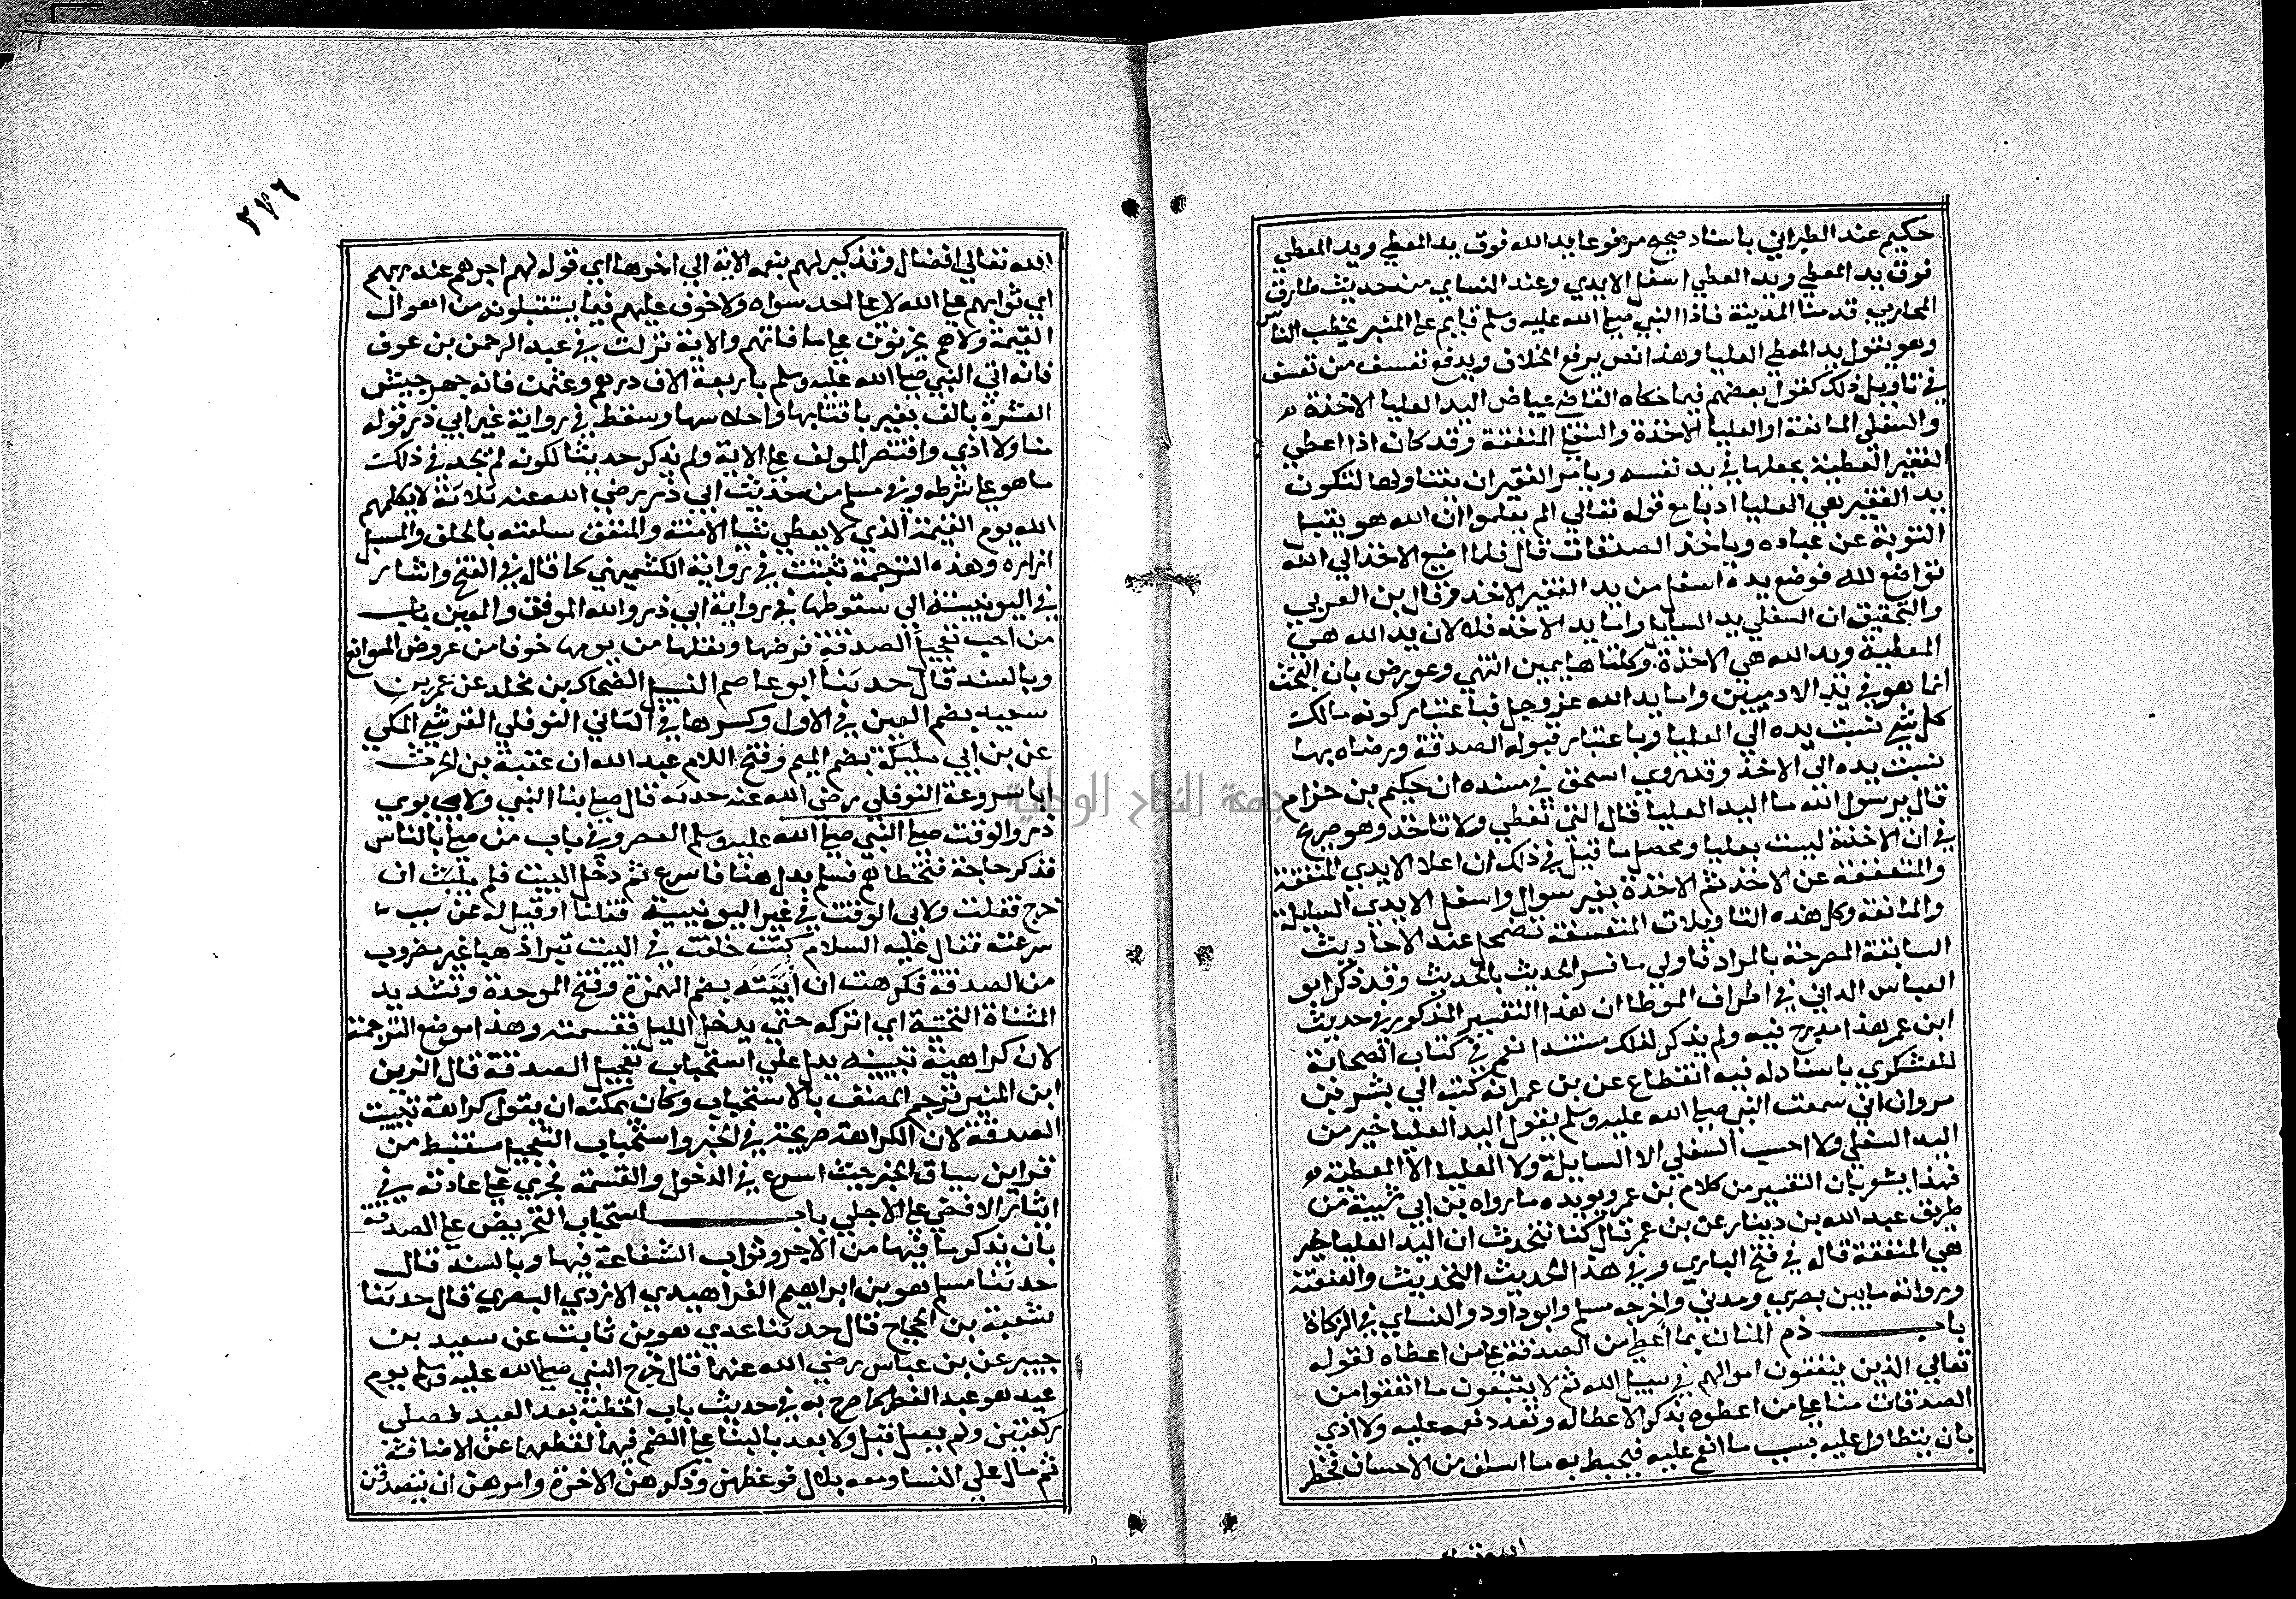 حكيم عند الطبراني باسناد صحيح مرفوعا يد الله فوق يد المعطي ويد المعطي
فوق يد المعطي ويد المعطي اسفل الايدي وعند النساي من حديث طارق
المحاربي قدمنا المدينة فاذا النبي صلى الله عليه وسلم قايم على المنبر يخطب الناس
وهو يقول يد المعطي العليا وهذا نص يرفع الخلاف ويدفع تعسف من تعسف
في تاويل ذلك كقول بعضهم فيما حكاه القاضي عياض اليد العليا الاخذة
والسفلى المانعة او العليا الاخذة والسفلى المنفقة وقد كان اذا اعطي
الفقير العطية يجعلها في يد نفسه ويامر الفقير ان يتناولها لتكون
يد الفقير هي العليا ادبا مع قوله تعالي الم يعلموا ان الله هو يقبل
التوبة عن عباده وياخذ الصدقات قال فلما اضيع الاخذ الي الله
تواضع لله فوضع يده اسفل من يد الفقير الاخذ وقال بن العربي
والتحقيق ان السفلي يد السايل واما يد الاخذ فلا لان يد الله هي
المعطية ويد الله هي الاخذة وكلتاهما يمين انتهي وعورض بان البحث
انما هو في يد الادميين واما يد الله عز وجل فباعتبار كونه مالك
كل شي نسبت يده الي العليا وباعتبار قبوله الصدقة ورضاه بها
نسبت يده الى الاخذ وقد روي اسحق في مسنده ان حكيم بن حزام
قال يرسول الله ما اليد العليا قال التي تعطي ولا تاخذ وهو صريح
في ان الاخذة ليست بعليا ومحصل ما قيل في ذلك ان اعلا الايدي المنفقة
والمتعففة عن الاخذ ثم الاخذة بغير سوال واسفل الايدي السايلة
والمانعة وكل هذه التاويلات المتعسفة تضمحل عند الاحاديث
السابقة المصرحة بالمراد فاولي ما فسر الحديث بالحديث وقد ذكر ابو
العباس الداني في اطراف الموطا ان هذا التفسير المذكور في حديث
ابن عمر هذا مدرج فيه ولم يذكر لذلك مستندا نعم في كتاب الصحابة
للعسكري باسناد له فيه انقطاع عن بن عمر انه كتب الي بشر بن
مروان اني سمعت النبي صلى الله عليه وسلم يقول اليد العليا خير من
اليد السفلي ولا احسب السفلي الا السايلة ولا العليا الا المعطية
فهذا يشعر بان التفسير من كلام بن عمر ويويده ما رواه بن ابي شيبة من
طريق عبد الله بن دينار عن بن عمر قال كنا نتحدث ان اليد العليا خير
هي المنفقة قال في فتح الباري وفي هذا الحديث التحديث والعنعنة
ورواته ما بين بصري ومدني واخرجه مسلم وابو داود والنساي في الزكاة
باب ذم المنان بما اعطي من الصدقة على من اعطاه لقوله
تعالي الذين ينفقون اموالهم في سبيل الله ثم لا يتبعون ما انفقوا من
الصدقات منا على من اعطوه بذكر الاعطا له وتعدد نعمه عليه ولا اذي
بان يتطاول عليه بسبب ما انعم عليه فيحبط به ما اسلف من الاحسان فحظر
٢٧٦
الله تعالي افضال وتذكير لهم بنعمه الاية الي اخرها اي قوله لهم اجرهم عند ربهم
اي ثوابهم على الله لا على احد سواه ولا خوف عليهم فيما يستقبلونه من اهوال
القيمة ولا هم يحزنون على ما فاتهم والاية نزلت في عبد الرحمن بن عوف
فانه اتي النبي صلى الله عليه وسلم باربعة الاف درهم وعثمن فانه جهز جيش
العشرة بالف بعير باقتابها واحلاسها وسقط في رواية غير ابي ذر قوله
منا ولا اذي واقتصر المولف على الاية ولم يذكر حديثا لكونه لم يجد في ذلك
ما هو على شرطه وفي مسلم من حديث ابي ذر رضي الله عنه ثلاثة لا يكلمهم
الله يوم القيمة الذي لا يعطي شيا الا منة والمنفق سلعته بالحلف والمسبل
ازاره وهذه الترجمة ثبتت في رواية الكشميهني كما قال في الفتح واشار
في اليونينية الي سقوطها في رواية ابي ذر والله الموفق والمعين باب
من احب تعجيل الصدقة فرضها ونفلها من يومها خوفا من عروض الموانع
وبالسند قال حدثنا ابو عاصم النبيل الضحاك بن مخلد عن عمر بن
سعيد بضم العين في الاول وكسرها في الثاني النوفلي القرشي المكي
عن بن ابي مليكة بضم الميم وفتح اللام عبد الله ان عقبة بن الحرث
ابا سروعة النوفلي رضي الله عنه حدثه قال صلى بنا النبي ولابي بوي
ذر والوقت صلى النبي صلى الله عليه وسلم العصر وفي باب من صلى بالناس
فذكر حاجة فتخطاهم فسلم بدل هنا فاسرع ثم دخل البيت فلم يلبث ان
خرج فقلت ولابي الوقت في غير اليونينية فقلنا او قيل له عن سبب
سرعته فقال عليه السلام كنت خلفت في البيت تبرا ذهبا غير مضروب
من الصدقة فكرهت ان ابيته بضم الهمزة وفتح الموحدة وتشديد
المثناة التحتية اي اتركه حتي يدخل الليل فقسمته وهذا موضع الترجمة
لان كراهية تبييته يدل علي استحباب تعجيل الصدقة قال الزين
ابن المنير ترجم المصنف بالاستحباب وكان يمكنه ان يقول كراهة تبييت
الصدقة لان الكراهة صريحة في الخبر واستحباب التعجيل مستنبط من
قراين سياق الخبر حيث اسرع في الدخول والقسمة فجري على عادته في
ايثار الاخفي على الاجلي باب استحباب التحريض على الصدقة
بان يذكر ما فيها من الاجر وثواب الشفاعة فيها وبالسند قال
حدثنا مسلم هو بن ابراهيم الفراهيدي الازدي البصري قال حدثنا
شعبة بن الحجاج قال حدثنا عدي هو بن ثابت عن سعيد بن
جبير عن بن عباس رضي الله عنهما قال خرج النبي صلى الله عليه وسلم يوم
عيد هو عيد الفطر كما صرح به في حديث باب الخطبة بعد العيد فصلي
ركعتين ولم يصل قبل ولا بعد بالبنا على الضم فيهما لقطعهما عن الاضافة
ثم مال علي النسا ومعه بلال فوعظهن وذكرهن الاخرة وامرهن ان يتصدقن